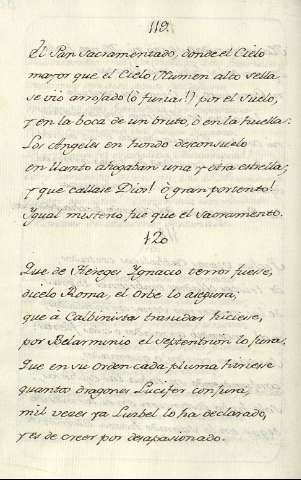 119.
El Pan Sacramentado, donde el Cielo
mayor que el Cielo Numen alto sella
se vió arrojado (ò furia!) por el Suelo,
y en la boca de un bruto, ò en la huella:
Los Angeles en hondo desconsuelo
en llanto ahogaban una y otra estrella;
y que callase Dios! ò gran portento!
Igual misterio fue que el Sacramento.
120
Que de Hereges Ygnacio terror fuese,
dicelo Roma, el Orbe lo asegura,
que à Calbinistas trasudar hiciese,
por Belarminio el septentrion lo jura.
Que en su orden cada pluma hiriese
quantos dragones Lucifer conjura,
mil veces ya Lusbel lo ha declarado,
y es de creer por desapasionado.